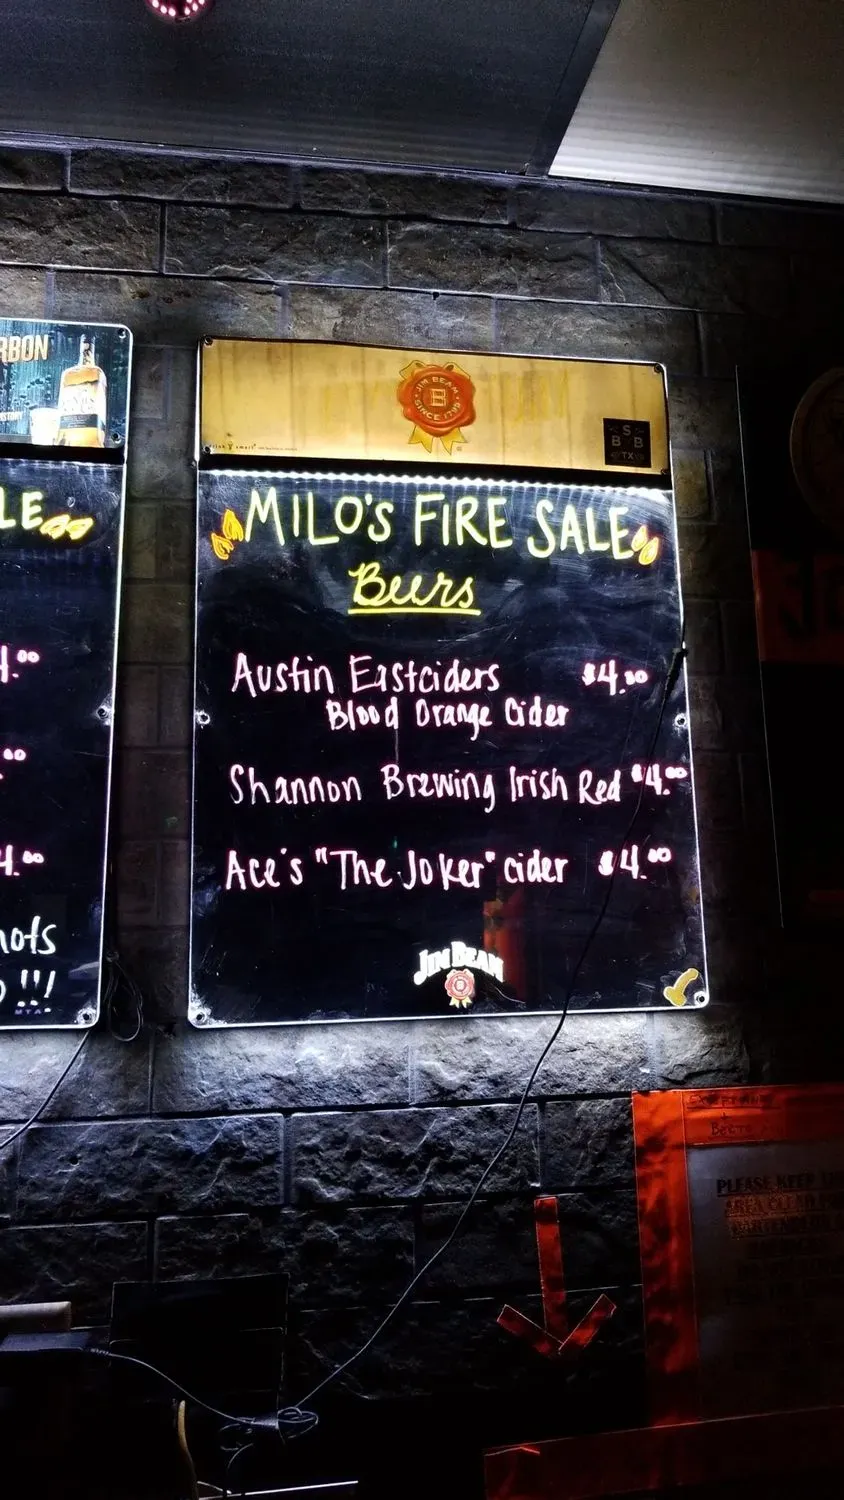 RBON
LE
4.00
.00
4.00
hots
!!!
MTA
JIM BEAM
B
SINCE 1795
S
B B
TX
MILO'S FIRE SALE
Beers
Austin Eastciders $4.00
Blood Orange Cider
Shannon Brewing Irish Red $4.00
Ace's "The Joker" cider $4.00
JIM BEAM
PLEASE KEEP
AREA CLEAR